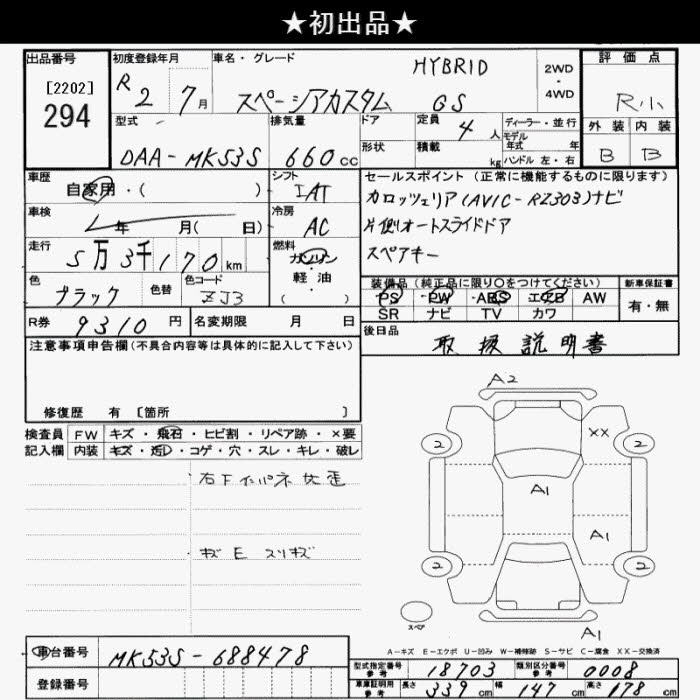 ★初出品★
出品番号
[2202]
294
初度登録年月
R 2 7月
車名・グレード
HYBRID
スペーシアカスタム GS
2WD
4WD
評価点
R小
外装 内装
B B
型式
DAA-MK53S
排気量
660cc
ドア
形状
定員
4人
積載
kg
ディーラー・並行
モデル
年式 年
ハンドル 左・右
車歴
自家用・( )
シフト
IAT
車検
年 月( 日)
冷房
AC
走行
5万3千170km
燃料
ガソリン
軽油
( )
色
ブラック
色替
色コード
ZJ3
R券 9310円
名変期限 月 日
セールスポイント(正常に機能するものに限ります)
カロッツェリア(AVIC-RZ303)ナビ
片側オートスライドドア
スペアキー
装備品(純正品に限り○をつけてください)
PS PW ABS エアB AW
SR ナビ TV カワ
新車保証書
有・無
後日品
取扱説明書
注意事項申告欄(不具合内容等は具体的に記入して下さい)
修復歴 有 [箇所 ]
検査員
記入欄
FW キズ・飛石・ヒビ割・リペア跡・×要
内装 キズ・汚レ・コゲ・穴・スレ・キレ・破レ
右下インパネ交歪
キズ E スリキズ
A2
2
XX
2
A1
A1
2
2
スペア
A1
A-キズ E-エクボ U-凹み W-補修跡 S-サビ C-腐食 XX-交換済
車台番号
MK53S-688478
登録番号
型式指定番号
参考
18703
類別区分番号
参考
0008
車庫証明用
参考
長さ 339cm 幅 147cm 高さ 178cm